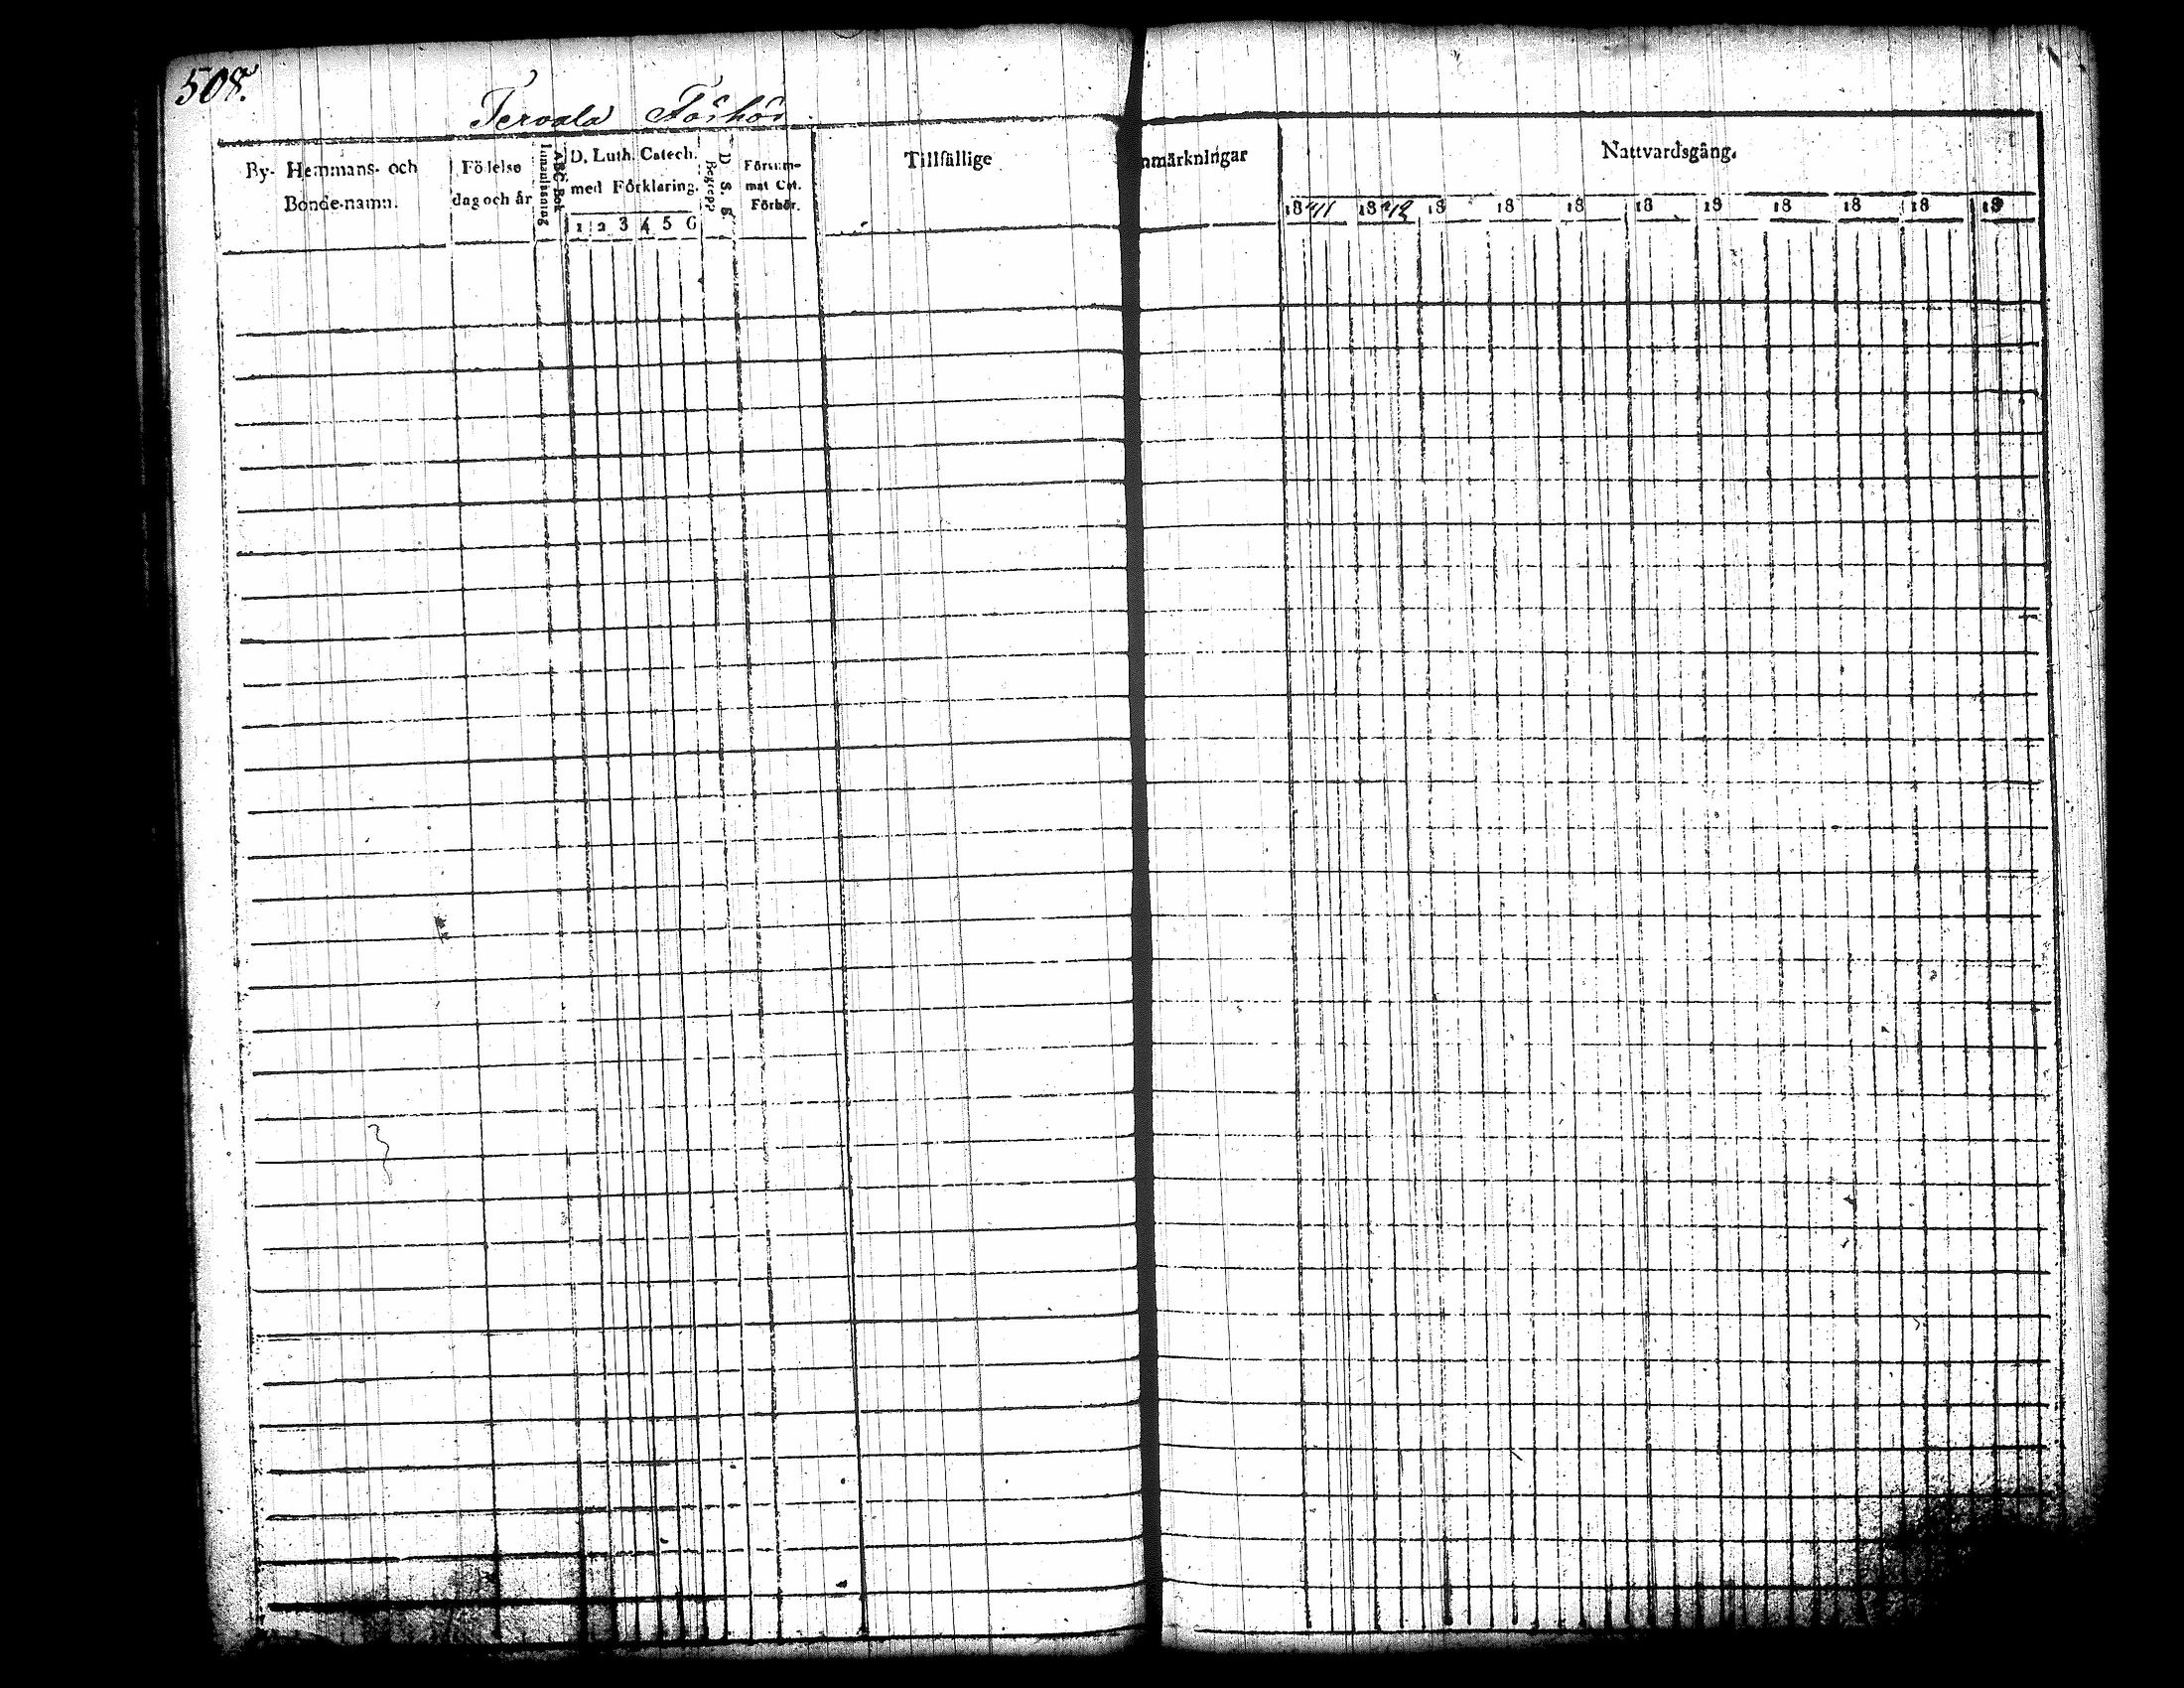 508.
Tervala Förhör
By- Hemmans- och
Bonde-namn.
Födelse
dag och år
ABC Bok
Innanläsning
D. Luth. Catech.
med Förklaring.
1 2 3 4 5 6
D. S. B.
Begrepp
Försum-
mat Cat.
Förhör.
Tillfällige
nmärkningar
Nattvardsgång.
1841 1842 18 18 18 18 18 18 18 18 18